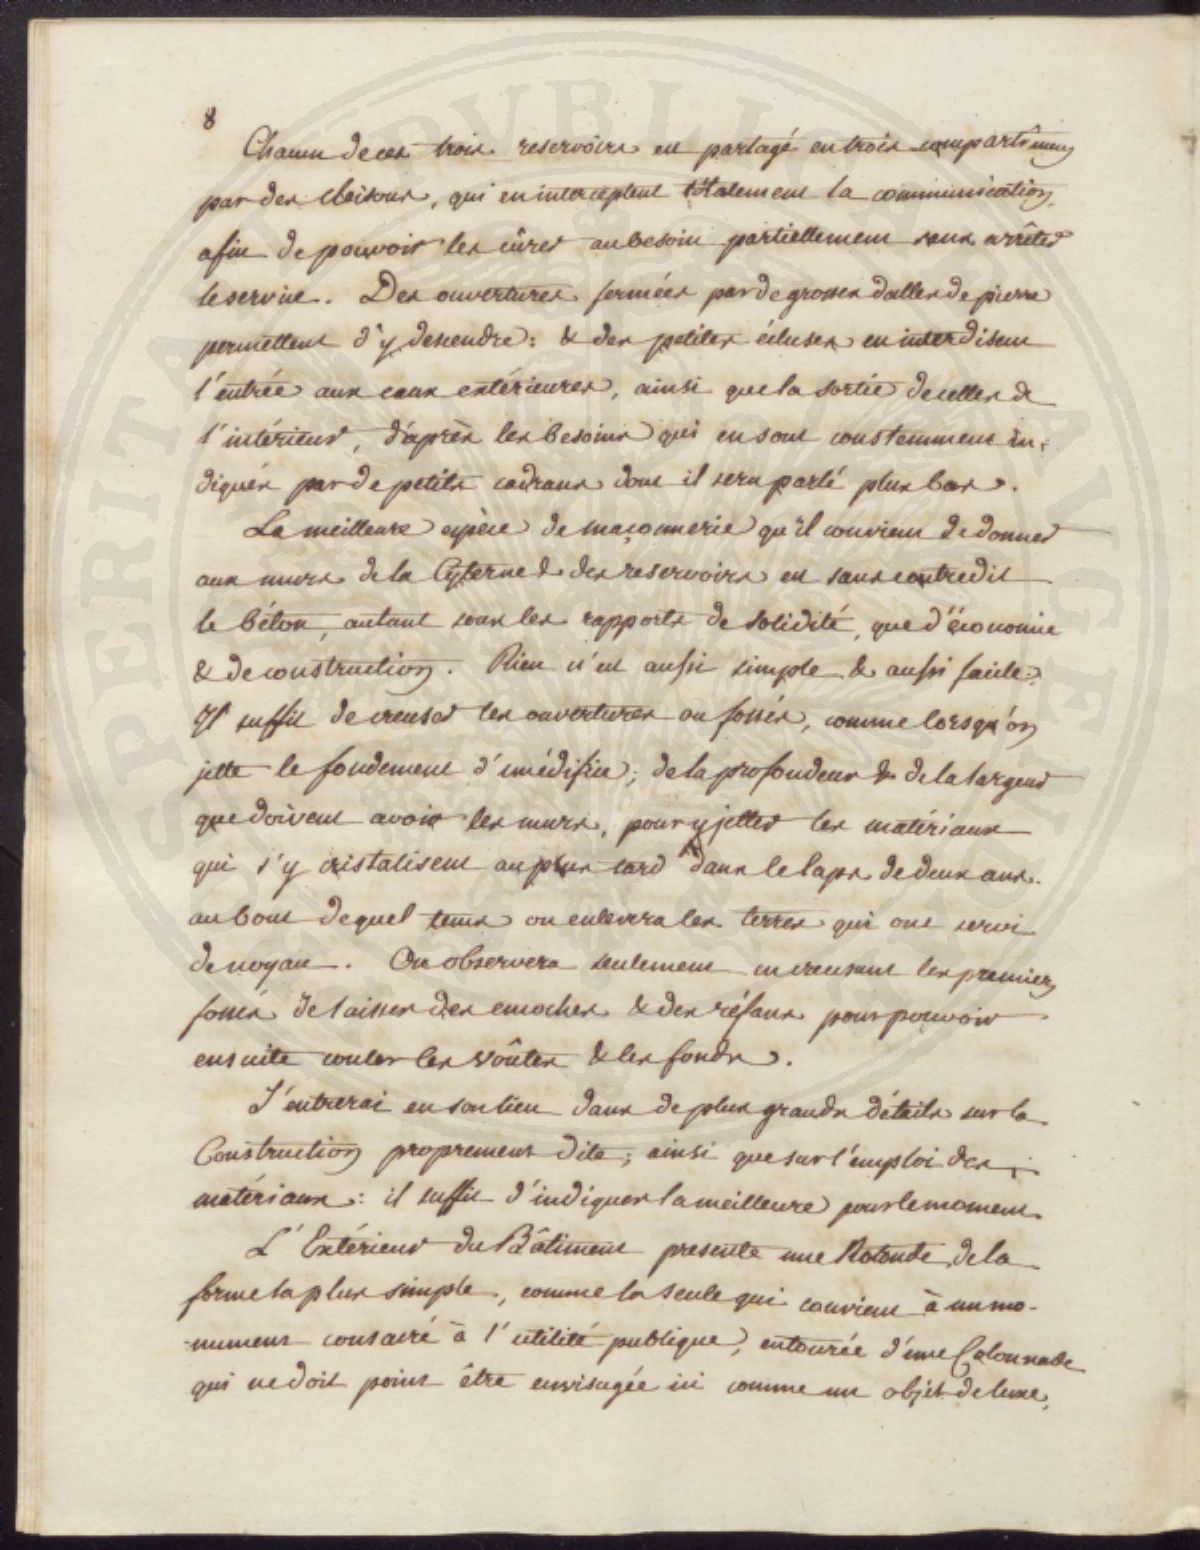 8
Chacun de ces trois reservoirs est partagé en trois compartimens
par des cloisons, qui en interceptent totalement la communication,
afin de pouvoir les cûrer au besoin partiellement sans arrêter
le service. Des ouvertures fermées par de grosses dalles de pierre
permettent d'y descendre: & des petites écluses en interdisent
l'entrée aux eaux extérieures, ainsi que la sortie de celles de
l'intérieur, d'après les besoins qui en sont constemment in-
diqués par de petits cadrans dont il sera parlé plus bas.
La meilleure espèce de maçonnerie qu'il convient de donner
aux murs de la Cyterne & des reservoirs est sans contredit
le béton, autant sous les rapports de solidité, que d'économie
& de construction. Rien n'est aussi simple & aussi facile:
Il suffit de creuser les ouvertures ou fossés, comme lorsqu'on
jette le fondement d'un édifice; de la profondeur & de la largeur
que doivent avoir les murs, pour y jetter les matériaux
qui s'y cristalisent au plus tard dans le laps de deux ans.
au bout de quel tems on enlevera les terres qui ont servi
de noyau. On observera seulement en creusant les premiers
fossés de laisser des encoches & des réfans pour pouvoir
ensuite couler les voûtes & les fonds.
J'entrerai en son lieu dans de plus grands détails sur la
Construction proprement dite; ainsi que sur l'emploi des
matériaux: il suffit d'indiquer la meilleure pour le moment.
L'Extérieur du Bâtiment presente une Rotonde de la
forme la plus simple, comme la seule qui convient à un mo-
-nument consacré à l'utilité publique, entourée d'une Colonnade
qui ne doit point être envisagée ici comme un objet de luxe,